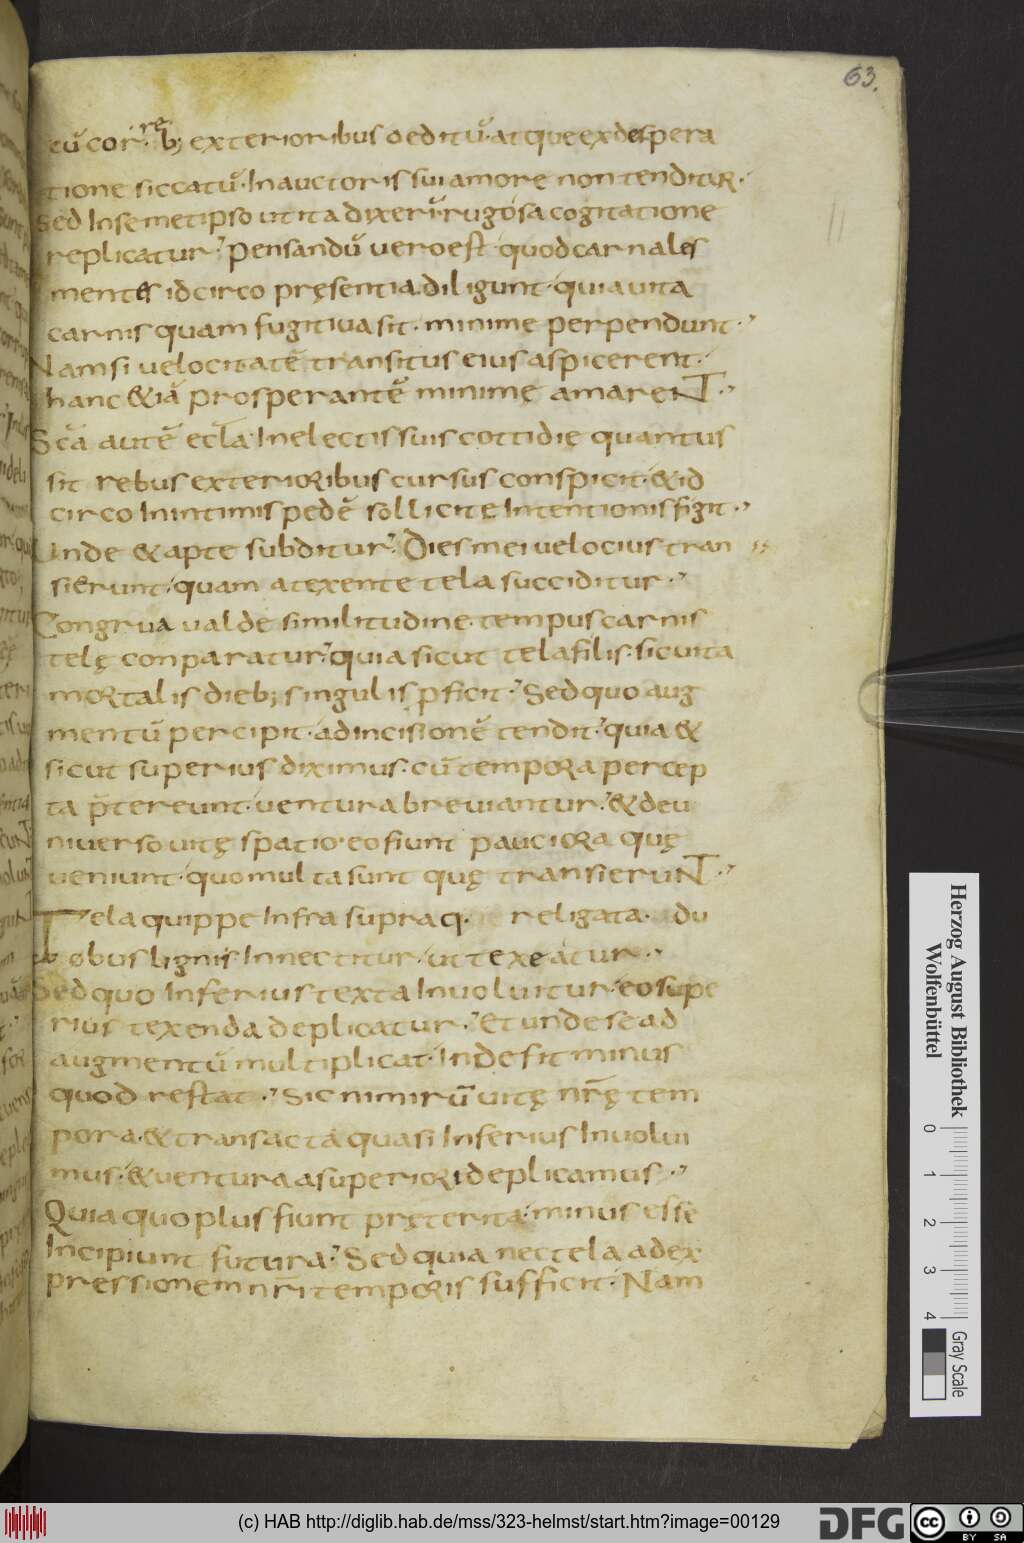 63.
cū cor reb; exterioribus deditū. atque ex despera
tione siccatū. In auctoris sui amore non tenditur.
Sed In semetipso ut ita dixerī. rugosa cogitatione
replicatur. Pensandū vero est quod carnales
mentes idcirco presentia diligunt. quia vita
carnis quam fugitiva sit. minime perpendunt.
Nam si velocitatē transitus eius aspicerent.
hanc & iā prosperantē minime amarent.
Scā autē eccla In electis suis cottidie quantus
sit rebus exterioribus cursus conspicit. & id
circo In intimis pedē sollicite Intentionis figit.
Unde & apte subditur. Dies mei velocius tran
sierunt. quam a texente tela succiditur.
Congrua valde similitudine. tempus carnis
telę conparatur. quia sicut tela filis. sic vita
mortalis dieb; singulis pficit. Sed quo aug
mentū percipit. ad incisionē tendit. quia &
sicut superius diximus. cū tempora percep
ta pͭereunt. ventura breviantur. & de u
niverso vitę spatio. eo fiunt pauciora quę
veniunt. quo multa sunt quę transierunt.
Tela quippe Infra supraq. religata. du
obus lignis Innectitur. ut texeatur.
Sed quo Inferius texta Involvitur. eo supe
rius texenda deplicatur. Et unde se ad
augmentū multiplicat. Inde fit minus
quod restat. Sic nimirū vitę nrę tem
pora. & transacta quasi Inferius Involvi
mus. & ventura a superiori deplicamus.
Quia quo plus fiunt pręterita. minus esse
Incipiunt futura. Sed quia nec tela ad ex
pressionem nri temporis sufficit. Nam
Herzog August Bibliothek
Wolfenbüttel
0 1 2 3 4
Gray Scale
(c) HAB http://diglib.hab.de/mss/323-helmst/start.htm?image=00129
DFG
cc BY SA